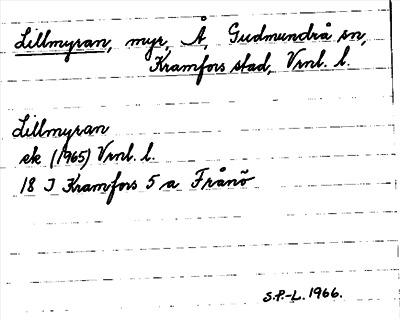 Lillmyran, myr, Å, Gudmundrå sn,
Kramfors stad, Vrnl. l.
Lillmyran
ek (1965) Vrnl. l.
18 I Kramfors 5 a Frånö
S.P.-L. 1966.